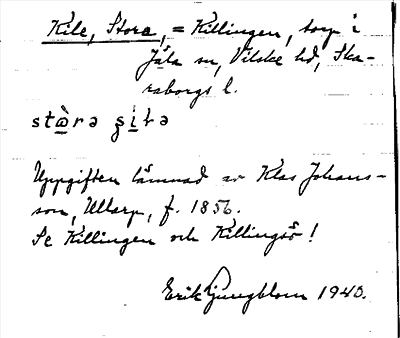 Kile, Stora, = Killingen, torp i
Jäla sn, Vilske hd, Ska-
raborgs l.
Uppgiften lämnad av Klas Johans-
son, Ullarp, f. 1856.
Se Killingen och Killingsö!
Erik Ljungblom 1940.